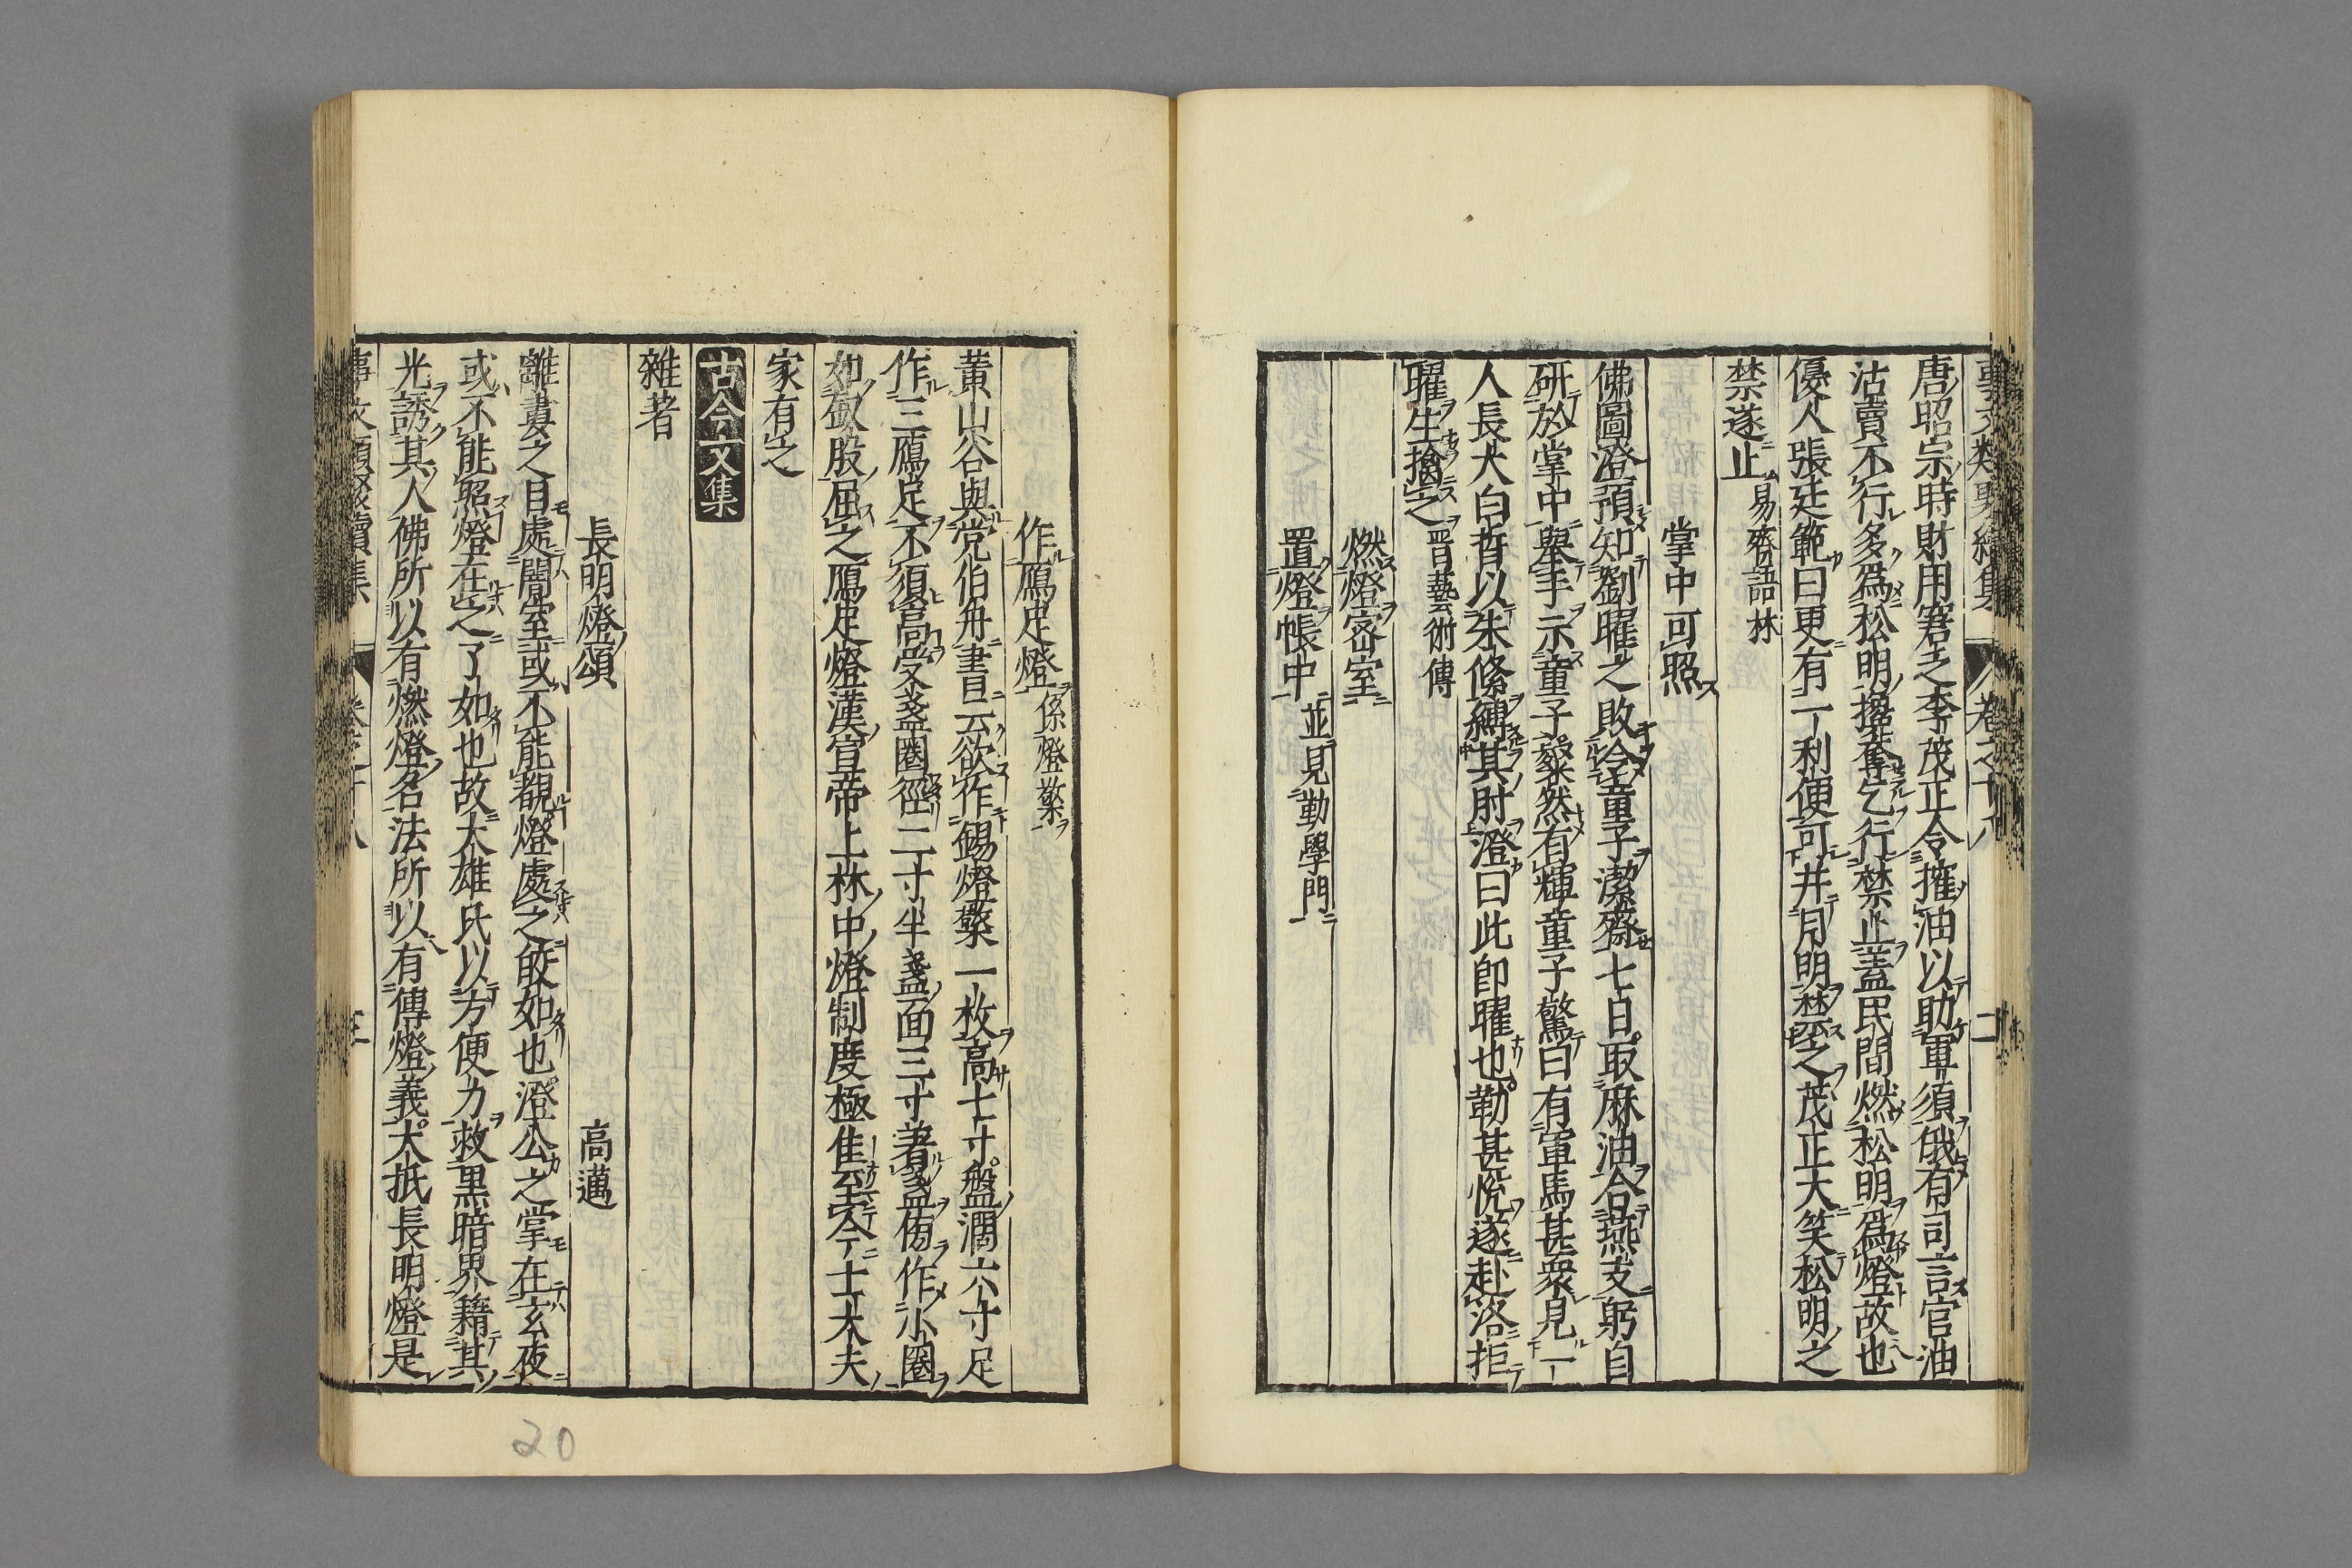 事文類聚續集 卷之十八 二
唐昭宗時財用窘乏李茂正令搉油以助軍須俄有司言官油
沽賣不行多爲松明攙奪乞行禁止蓋民間燃松明爲燈故也
優人張廷範曰更有一利便可并月明禁之茂正大笑松明之
禁遂止易齋語林
掌中可照
佛圖澄預知劉曜之敗令童子潔齋七日取麻油合燕支躬自
研於掌中舉手示童子粲然有輝童子驚曰有軍馬甚衆見一
人長大白晳以朱絛縛其肘澄曰此卽曜也勒甚悅遂赴洛拒
曜生擒之晉藝術傳
燃燈密室
置燈帳中並見勤學門
作鴈足燈係燈檠
黃山谷與党伯舟書云欲作錫燈檠一枚高七寸盤濶六寸足
作三鴈足不須高受盞圈徑二寸半盞面三寸著盞傍作小圈
如釵股屈之鴈足燈漢宣帝上林中燈制度極佳至今士大夫
家有之
古今文集
雜著
長明燈頌 高邁
離婁之目處闇室或不能覩燈處之皎如也澄公之掌在玄夜
或不能照燈在之了如也故大雄氏以方便力救黑暗界籍其
光誘其人佛所以有燃燈名法所以有傳燈義大抵長明燈是
事文類聚續集
20